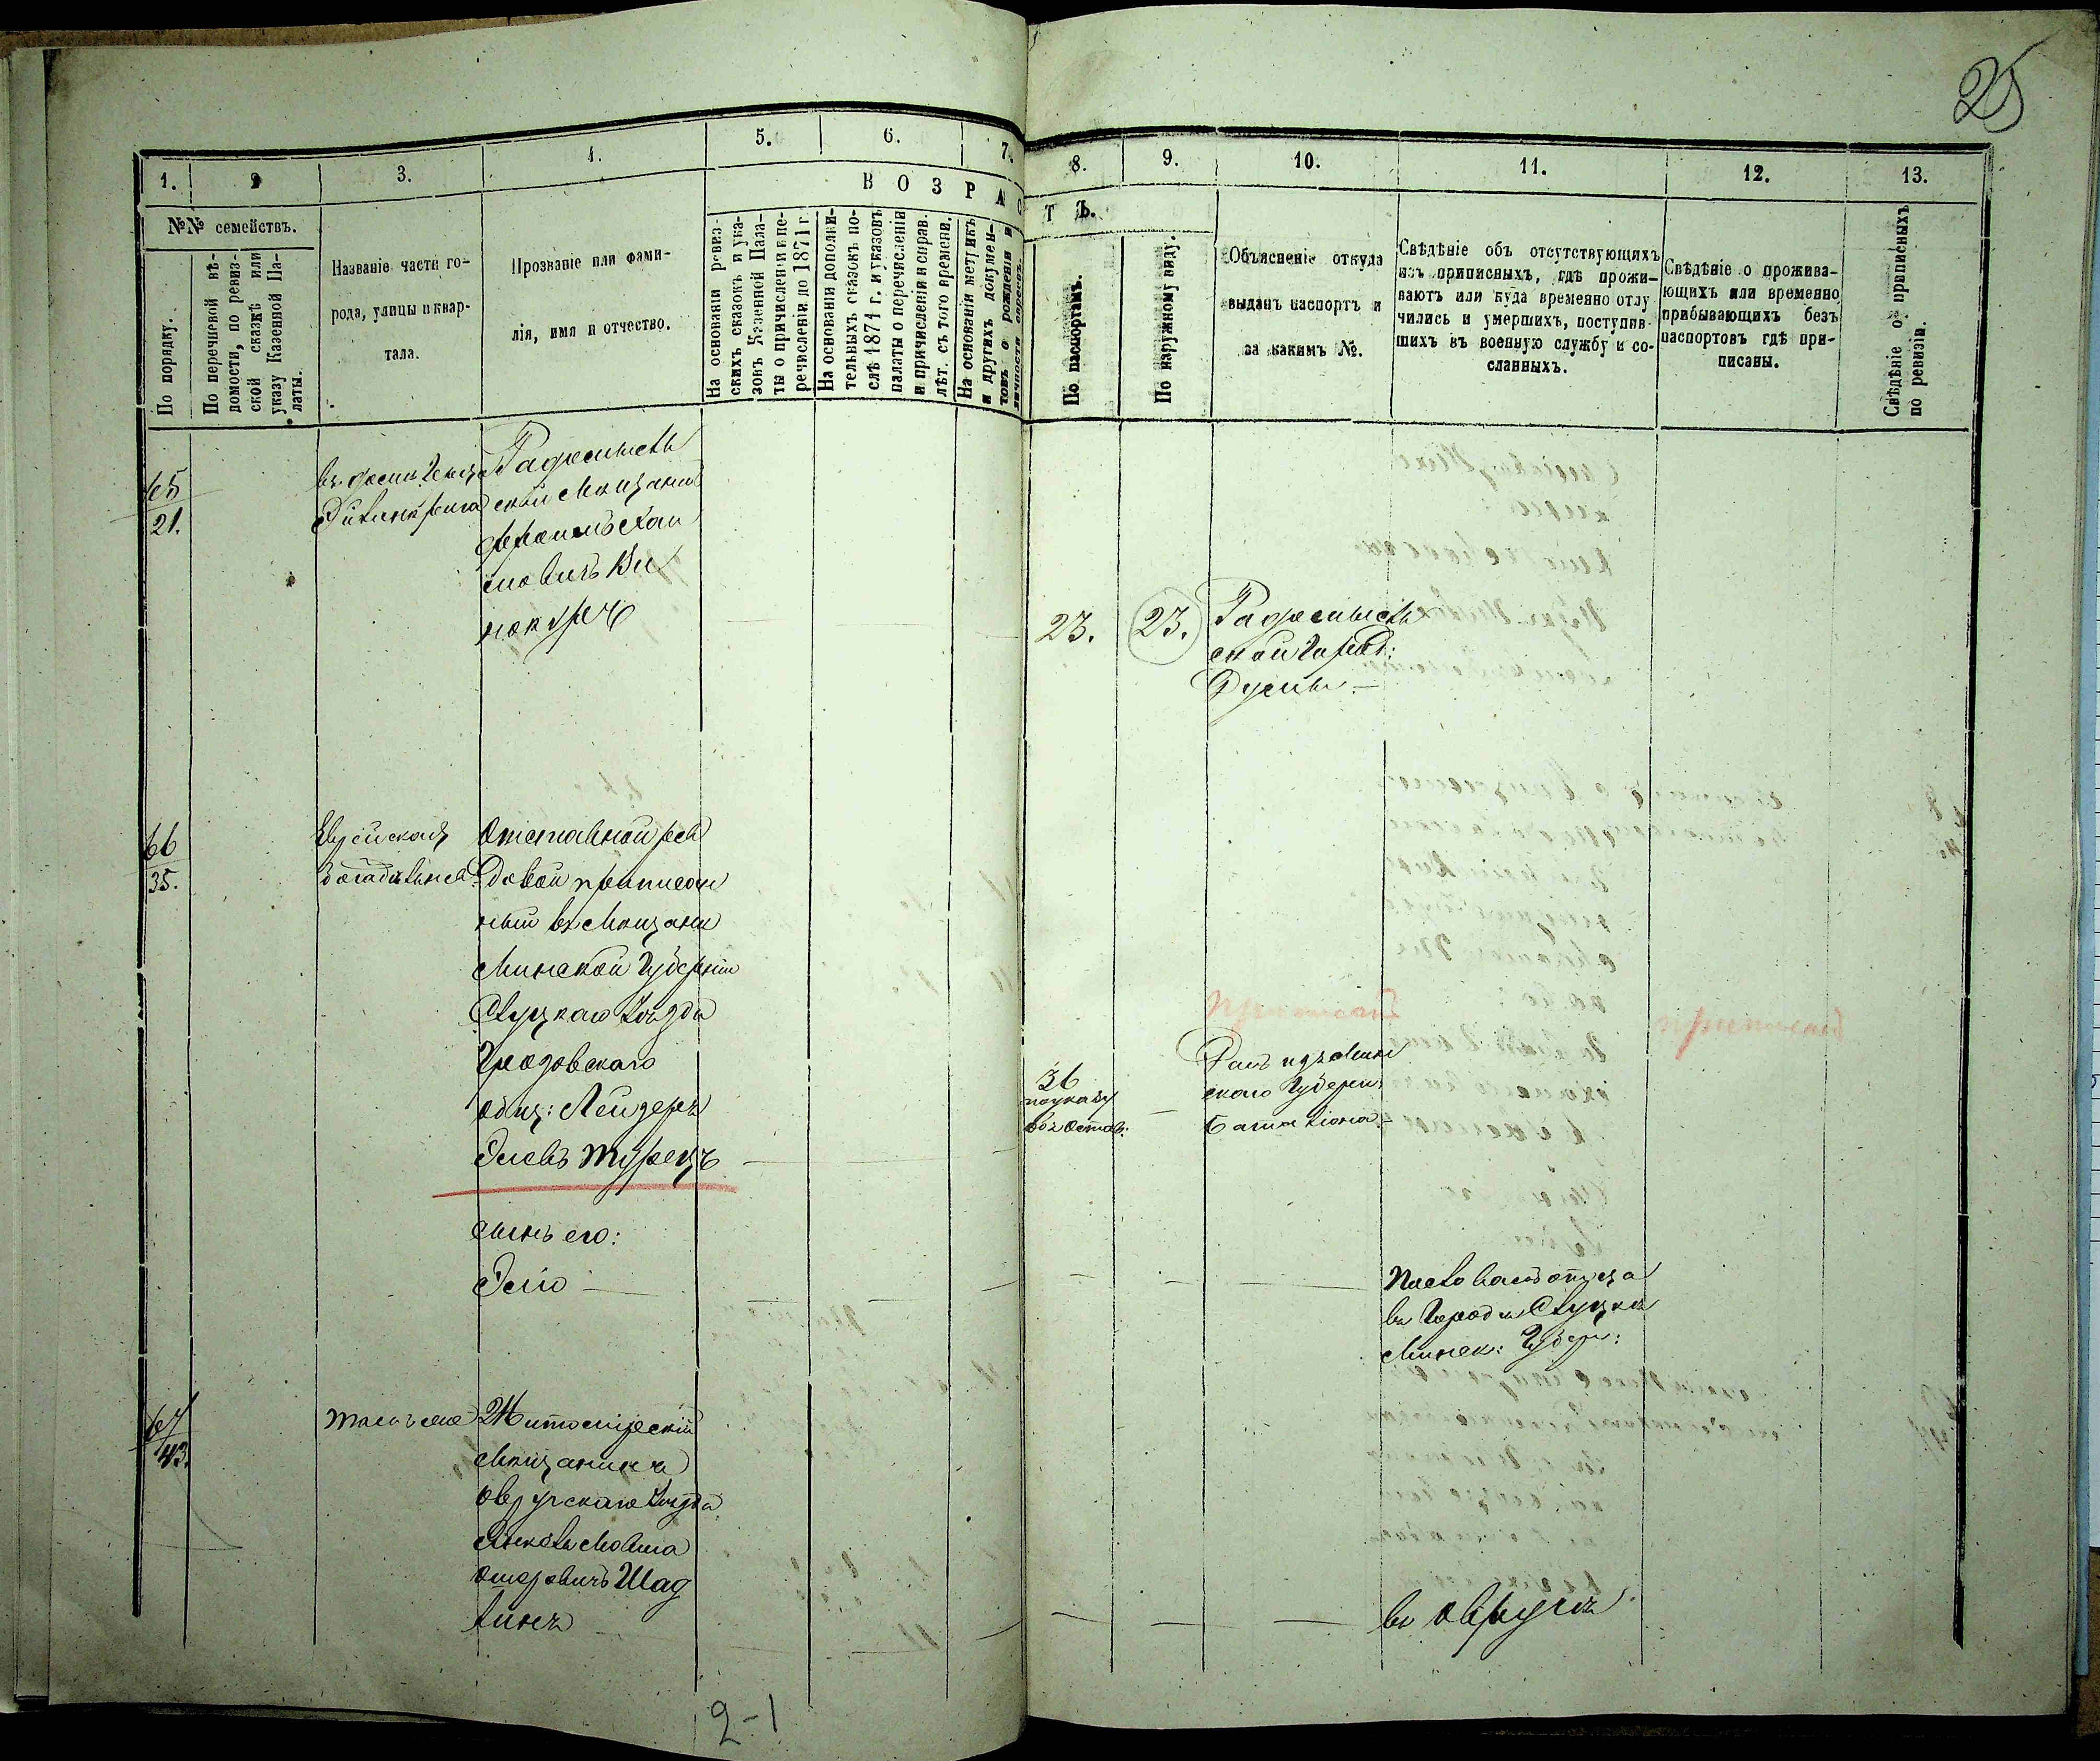 25
1.
2
3.
4.
5.
6.
7.
8.
9.
10.
11.
12.
13.
№№ семействъ.
По порядку.
По перечневой вѣ-
домости, по ревиз-
ской сказкѣ или
указу Казенной Па-
латы.
Названіе части го-
рода, улицы и квар-
тала.
Прозваніе или фами-
лія, имя и отчество.
В О З Р А С
Т Ъ.
На основаніи ревиз-
скихъ сказокъ и ука-
зовъ Казенной Пала-
ты о причисленіи и пе-
речисленіи до 1871 г.
На основаніи дополни-
тельныхъ сказокъ по-
слѣ 1871 г. и указовъ
палаты о перечисленіи
и причисленіи и справ.
лѣт. съ того времени.
На основаніи метрикъ
и другихъ докумен-
товъ о рожденіи и
По паспортамъ.
По наружному виду.
Объясненіе откуда
выданъ паспортъ и
за какимъ №.
Свѣдѣніе объ отсутствующихъ
изъ приписныхъ, гдѣ прожи-
ваютъ или куда временно отлу-
чились и умершихъ, поступив-
шихъ въ военную службу и со-
сланныхъ.
Свѣдѣніе о прожива-
ющихъ или временно
прибывающихъ безъ
паспортовъ гдѣ при-
писаны.
Свѣдѣніе о приписныхъ
по ревизіи.
65
21.
въ
Радомысль
скій Мѣщанинъ
23.
23.
Радомысль
ской Город:
Думы —
66
35.
Еврейская
Богадѣльня
Отставной ря
довой приписан
ный въ Мѣщане
Минской Губерніи
Слуцкаго Уѣзда
Грозовскаго
общ: Лейзеръ
Турецъ
сынъ его:
36
по указу
объ отстав:
Данъ изъ Мин
скаго Губернс
Баталіона —
въ Городѣ Слуцкѣ
Минск: Губерн:
67
43.
тамъ же
Житомірскій
Мѣщанинъ
Овручскаго Уѣзда
Мовша
Ошеровичъ Шад
въ Овручѣ
2-1